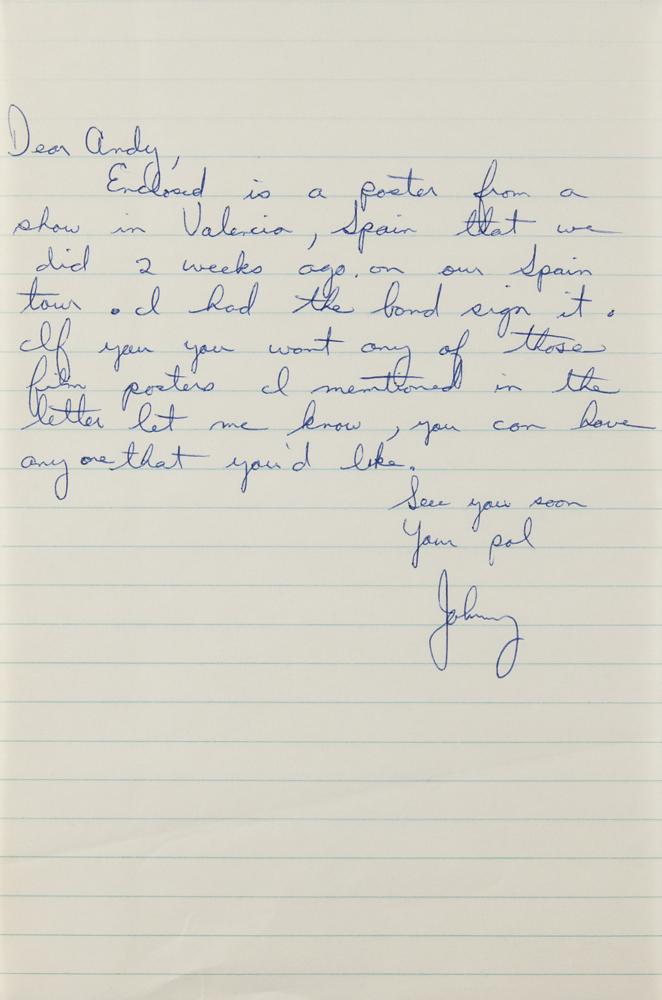 Dear Andy,
Enclosed is a poster from a
show in Valencia, Spain that we
did 2 weeks ago. on our Spain
tour. I had the band sign it.
If you you want any of those
film posters I mentioned in the
letter let me know, you can have
any one that you'd like.
See you soon
Your pal
Johnny